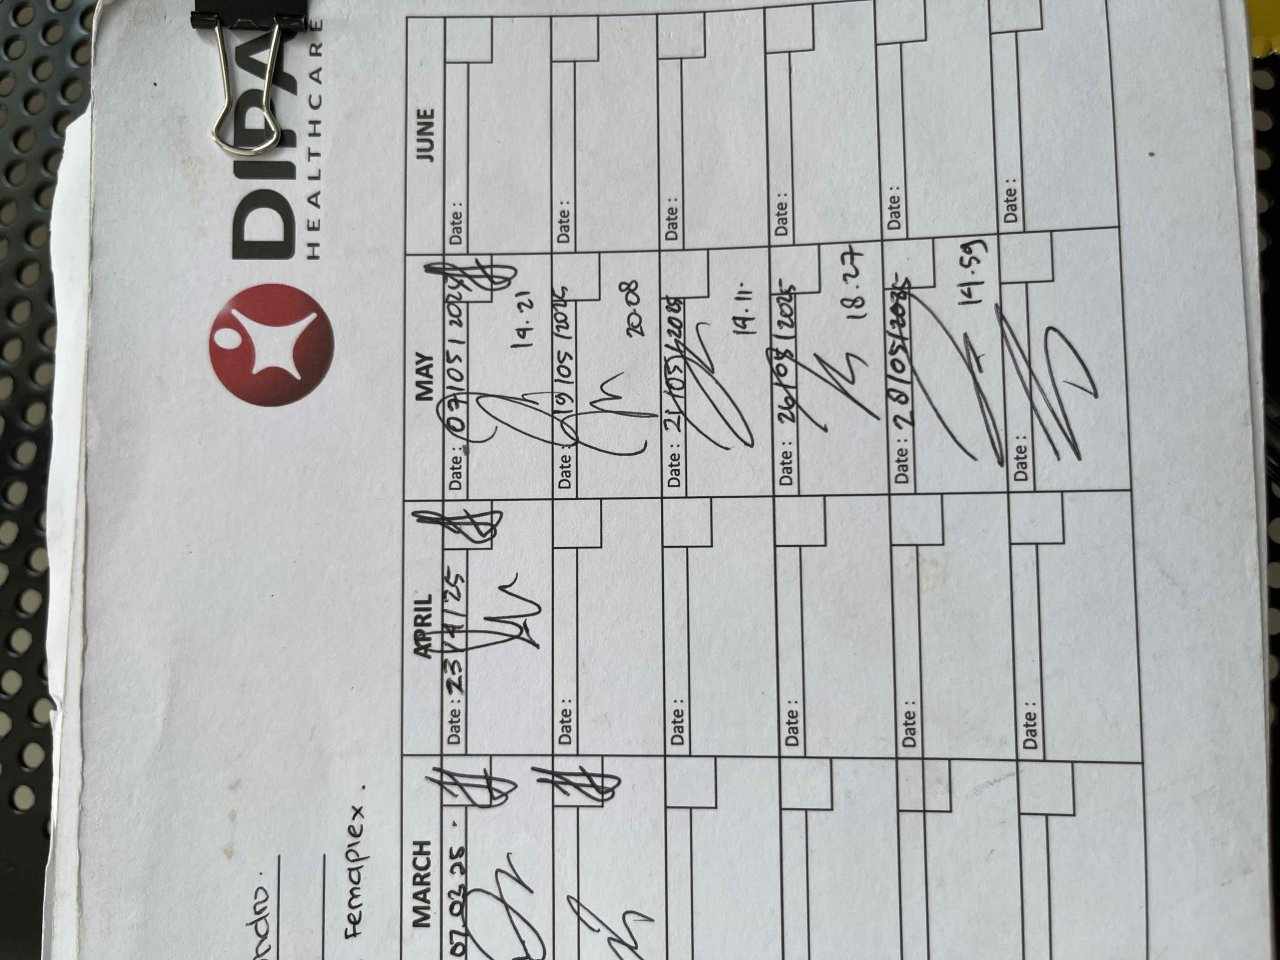 DIPA
HEALTHCARE
ndro.
Femaplex.
MARCH
APRIL
MAY
JUNE
07.03.25.
Date: 23/4/25
Date: 07/05/2025
14.21
Date:
Date:
Date: 19/05/2025
20.08
Date:
Date:
Date: 21/05/2025
19.11.
Date:
Date:
Date: 26/05/2025
18.27
Date:
Date:
Date: 28/05/2025
14.59
Date:
Date:
Date:
Date: